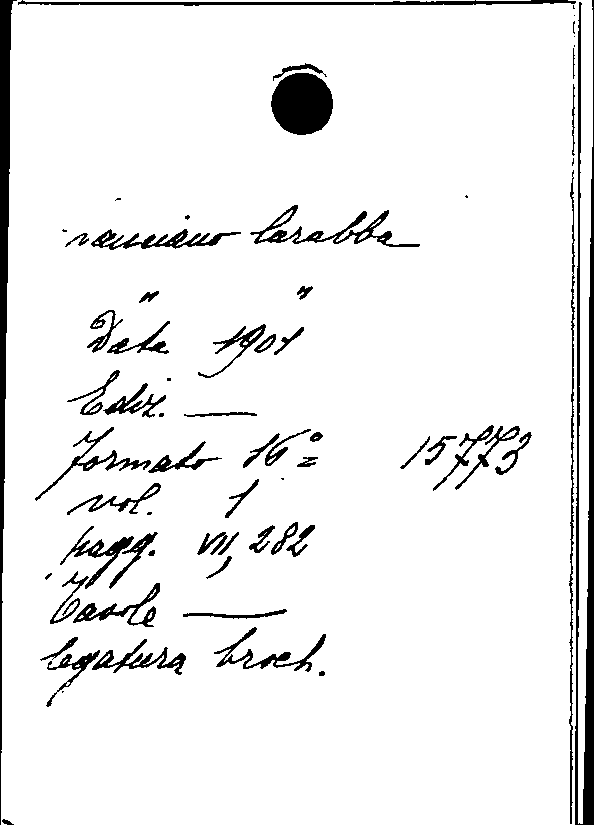 Lanciano Carabba
" "
Data 1901
Ediz. —
formato 16° 15773
vol. 1
pagg. VII, 282
Tavole —
legatura broch.